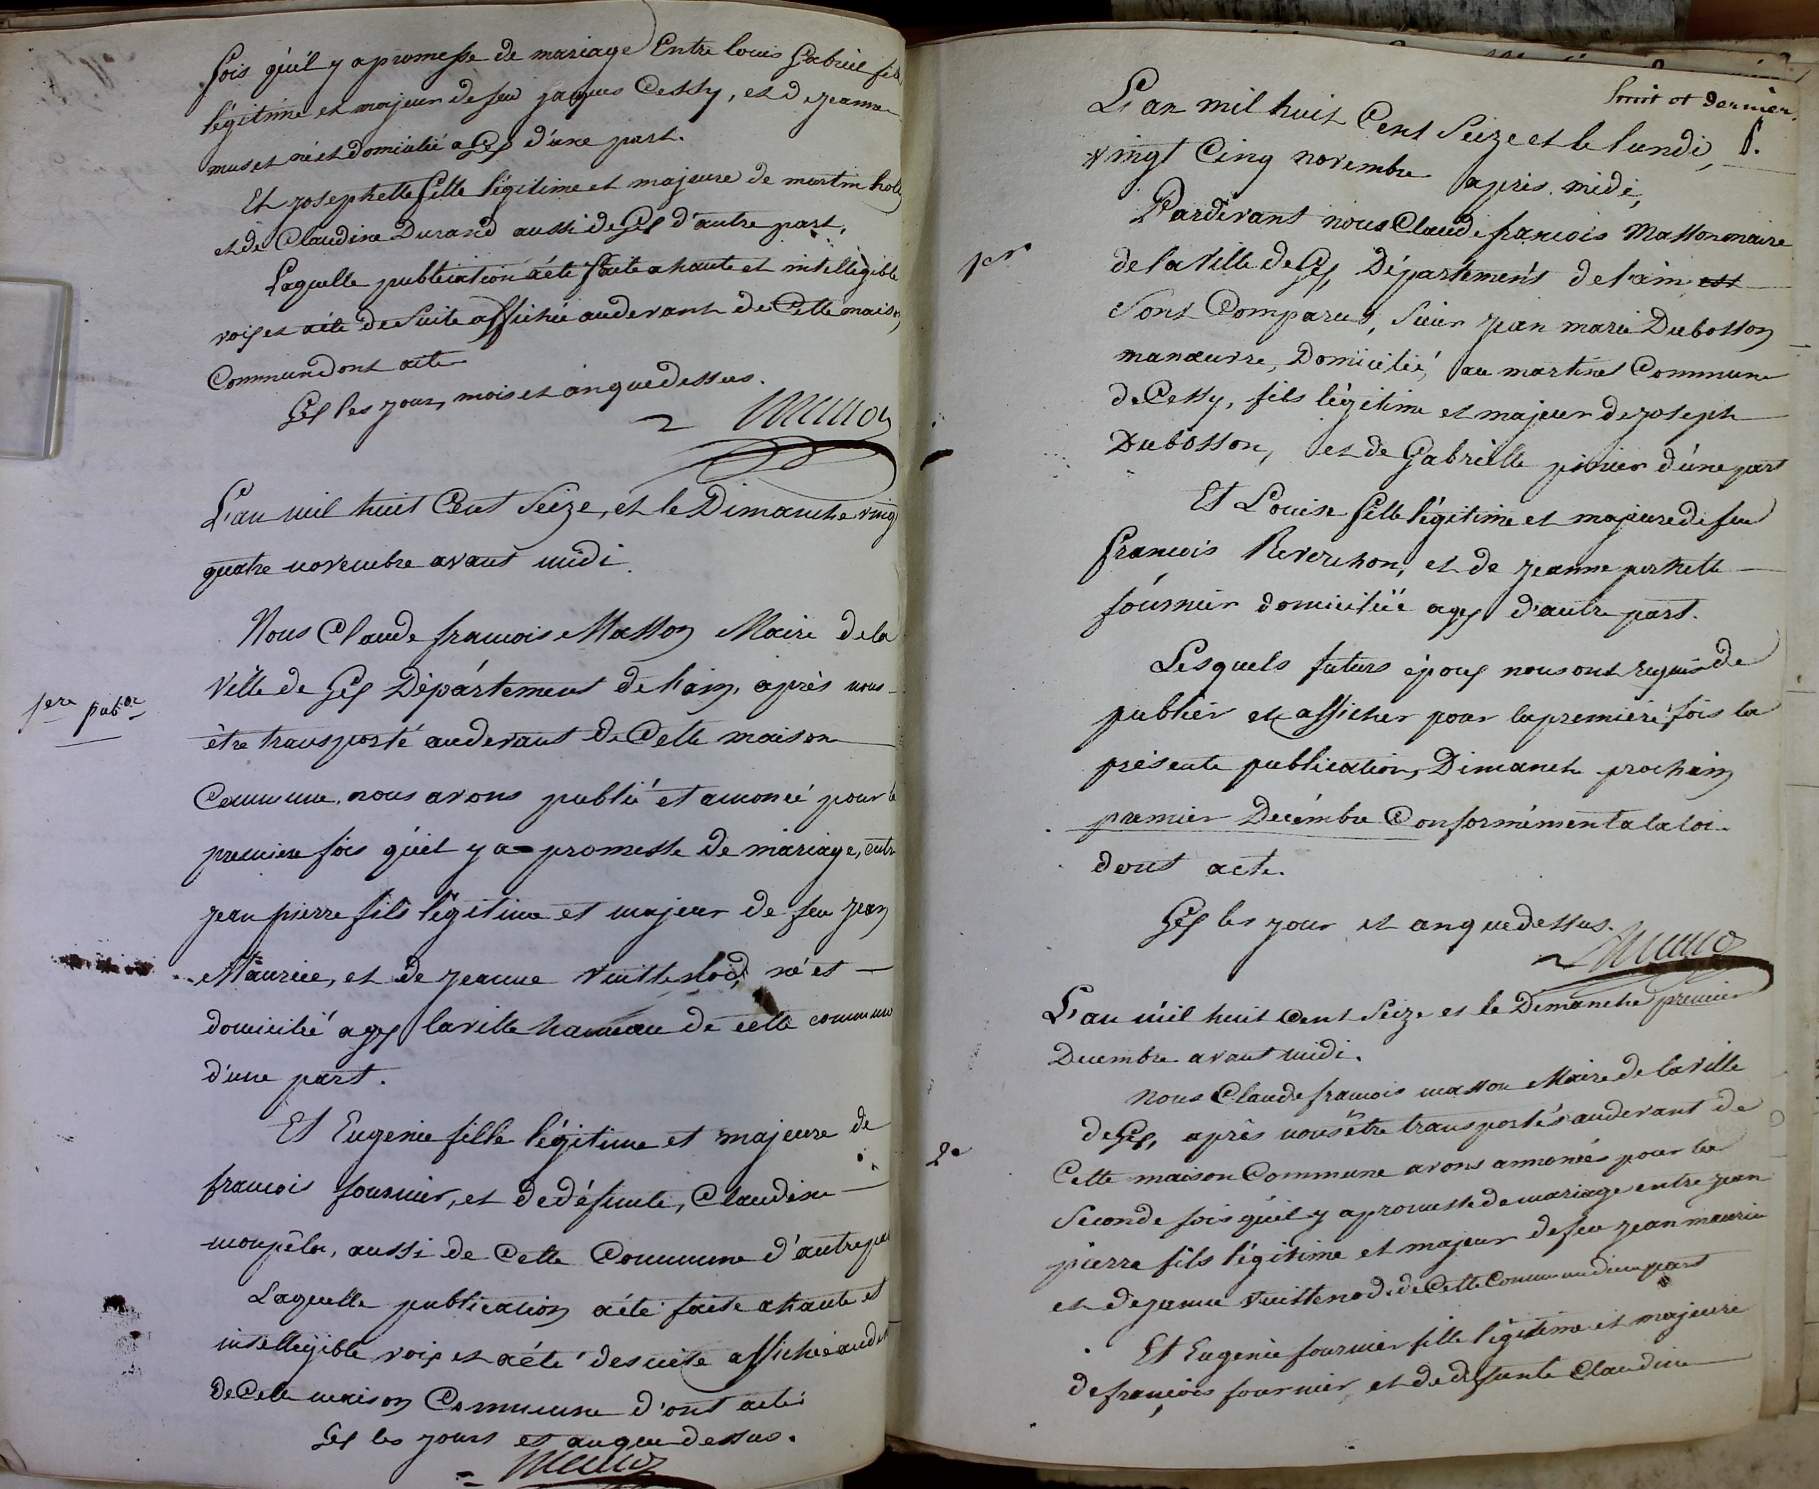 fois qu'il y a promesse de mariage Entre louis Gabriel fils
légitime et majeur de feu jaques Cessy, et de jeanne
muset né et domicilié a Gex d'une part.
Et josephette fille légitime et majeure de martin
et de Claudine Durand aussi de Gex d'autre part,
Laquelle publication a été faite a haute et intelligible
voix et a été de suite affichée audevant de Cette maison
Commune dont acte
Gex les jour, mois et an que dessus.
L'an mil huit Cent Seize, et le Dimanche vingt
quatre novembre avant midi.
Nous Claude francois Masson Maire de la
1ere pubon
Ville de Gex Département de l'ain, après nous
être transporté audevant de Cette maison
Commune, nous avons publié et annoncé pour la
premiere fois qu'il y a promesse de mariage, entre
jean pierre fils légitime et majeur de feu jean
Maurice, et de jeanne né et
domicilié a gex la ville hameau de cette commune
d'une part.
Et Eugenie fille légitime et majeure de
francois fournier, et de défunte, Claudine
aussi de Cette Commune d'autre part
Laquelle publication a été faite a haute et
intelligible voix et a été de suite affichée audevant
de Cette maison Commune d'ont acte
Gex les jours et an que dessus.
huit et dernier.
L'an mil huit Cent Seize et le lundi,
vingt Cinq novembre après midi,
Pardevant nous Claude francois Masson maire
1er
de la Ville de Gex Département de l'ain est
Sont Comparus, Sieur jean marie Dubosson
manœuvre, Domicilié, au martinet Commune
de Cessy, fils légitime et majeur de joseph
Dubosson, et de Gabrielle d'une part
Et Louise fille légitime et majeure de feu
francois Reverchon, et de jeanne pernette
fournier domiciliée a gex d'autre part.
Lesquels futurs époux nous ont requis de
publier et afficher pour la premiere fois la
présente publication, Dimanche prochain
premier Decémbre Conformément a la loi
dont acte.
Gex les jour et an que dessus.
L'an mil huit Cent Seize et le Dimanche premier
Decembre avant midi.
Nous Claude francois masson Maire de la Ville
de Gex, après nous être transportés audevant de
2e
Cette maison Commune avons annoncés pour la
Seconde fois qu'il y a promesse de mariage entre jean
pierre fils légitime et majeur de feu jean maurice
et de jeanne de Cette Commune d'une part
Et Eugenie fournier fille légitime et majeure
de françois fournier, et de defunte Claudine